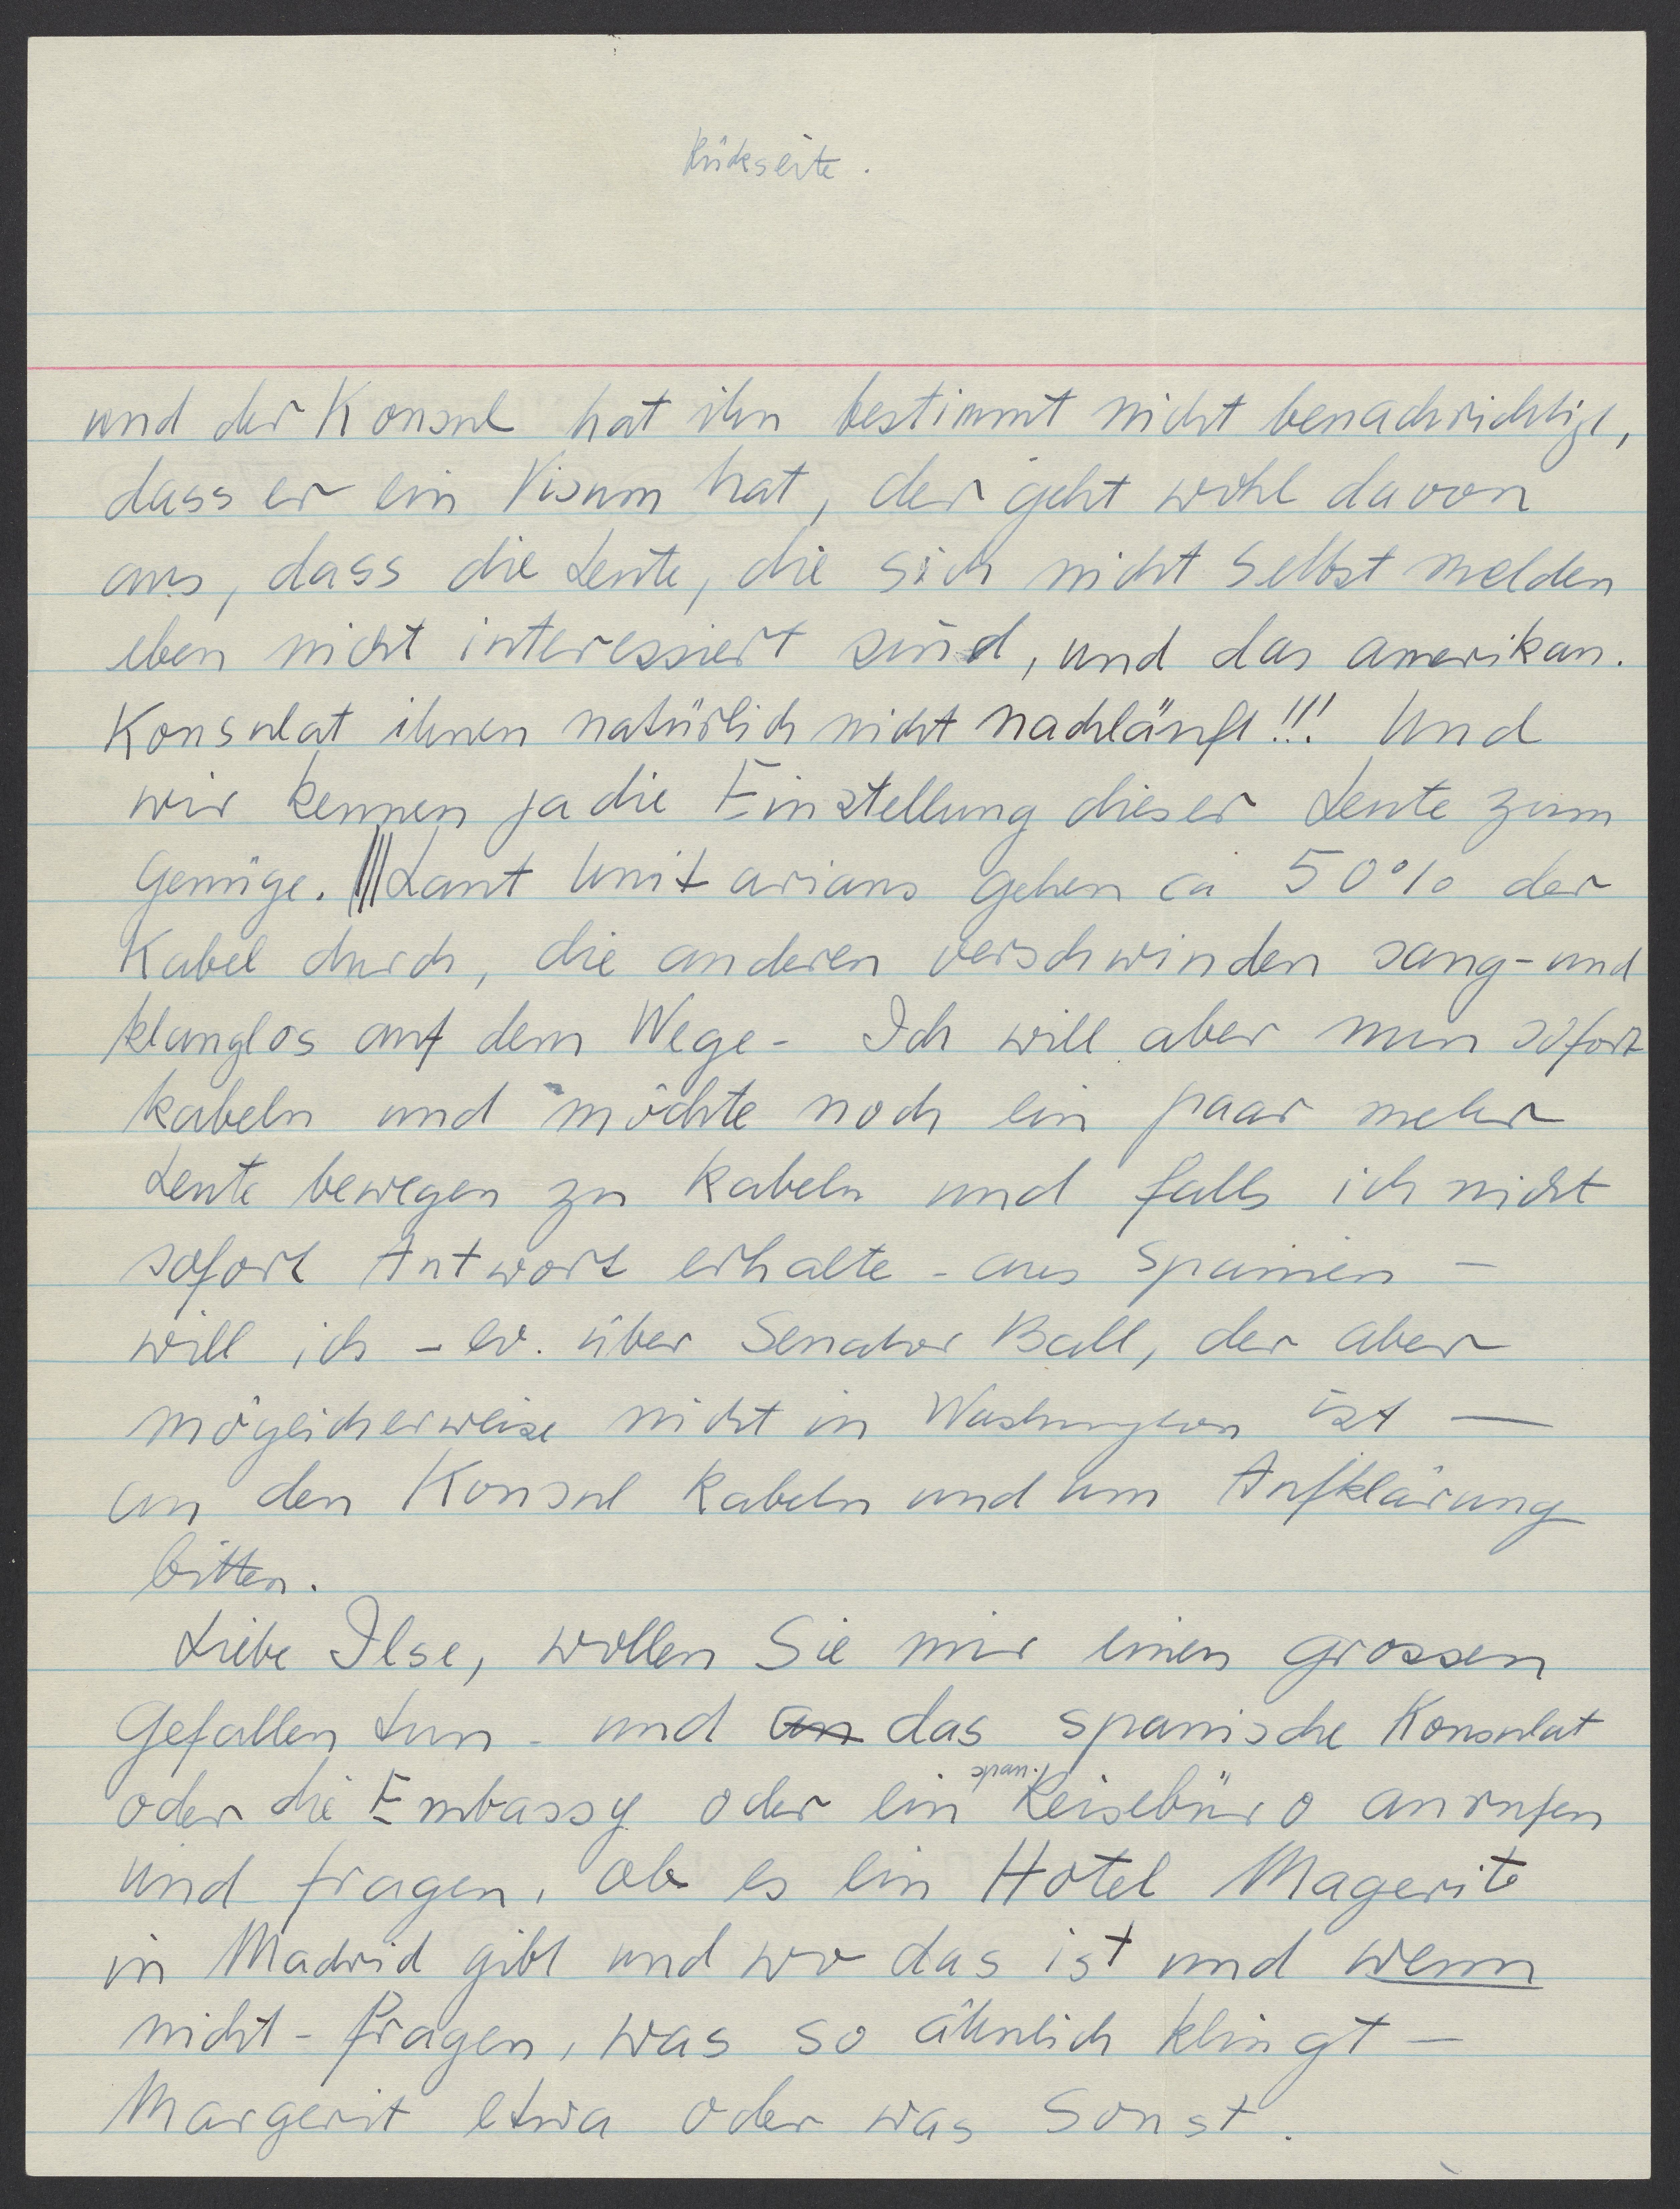 Rükseite.
und der Konsul hat ihn bestimmt nicht benachrichtigt,
dass er ein Visum hat, der geht wohl davon
aus, dass die Leute, die sich nicht selbst melden
eben nicht interessiert sind, und das amerikan.
Konsulat ihnen natürlich nicht nachläuft!!! Und
wir kennen ja die Einstellung dieser Leute zum
Genüge. Laut Unitarians gehen ca 50% der
Kabel durch, die anderen verschwinden sang- und
klanglos auf dem Wege - Ich will aber nun sofort
kabeln und möchte noch ein paar mehr
Leute bewegen zu kabeln und falls ich nicht
sofort Antwort erhalte - aus Spanien -
will ich - ev. über Senator Ball, der aber
möglicherweise nicht in Washington ist —
an den Konsul kabeln und um Aufklärung
bitten.
Liebe Ilse, wollen Sie mir einen grossen
Gefallen tun - und an das spanische Konsulat
oder die Embassy oder ein Reisebüro anrufen
und fragen, ob es ein Hotel Magerit
in Madrid gibt und wo das ist und wenn
nicht - fragen, was so ähnlich klingt -
Margerit etwa oder was sonst.